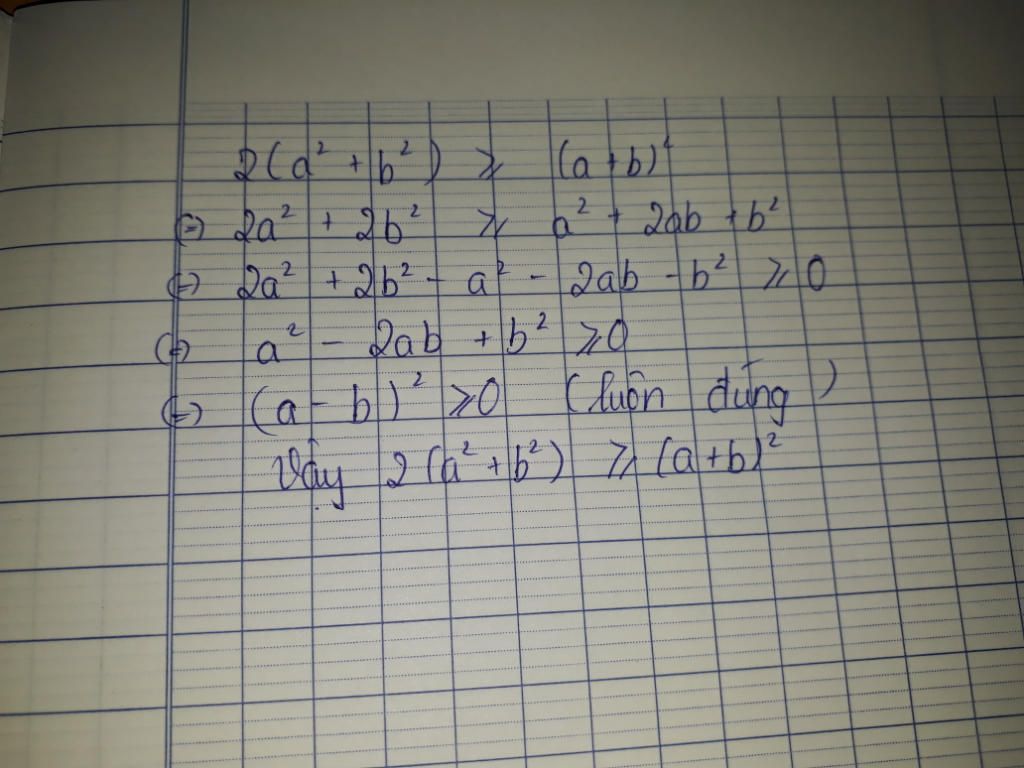 2(a² + b²) ⩾ (a+b)²
⇔ 2a² + 2b² ⩾ a² + 2ab + b²
⇔ 2a² + 2b² - a² - 2ab - b² ⩾ 0
⇔ a² - 2ab + b² ⩾ 0
⇔ (a - b)² ⩾ 0 (luôn đúng)
Vậy 2(a² + b²) ⩾ (a+b)²